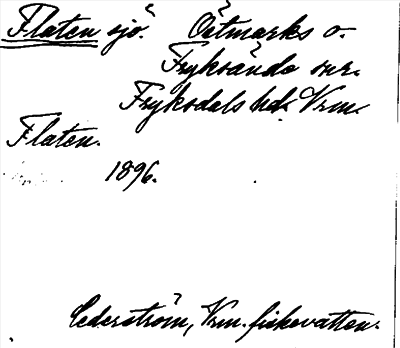 Flaten sjö. Östmarks o.
Fryksände snr.
Fryksdals hd. Vrm.
Flaten.
1896.
Cederström, Vrm. fiskevatten.